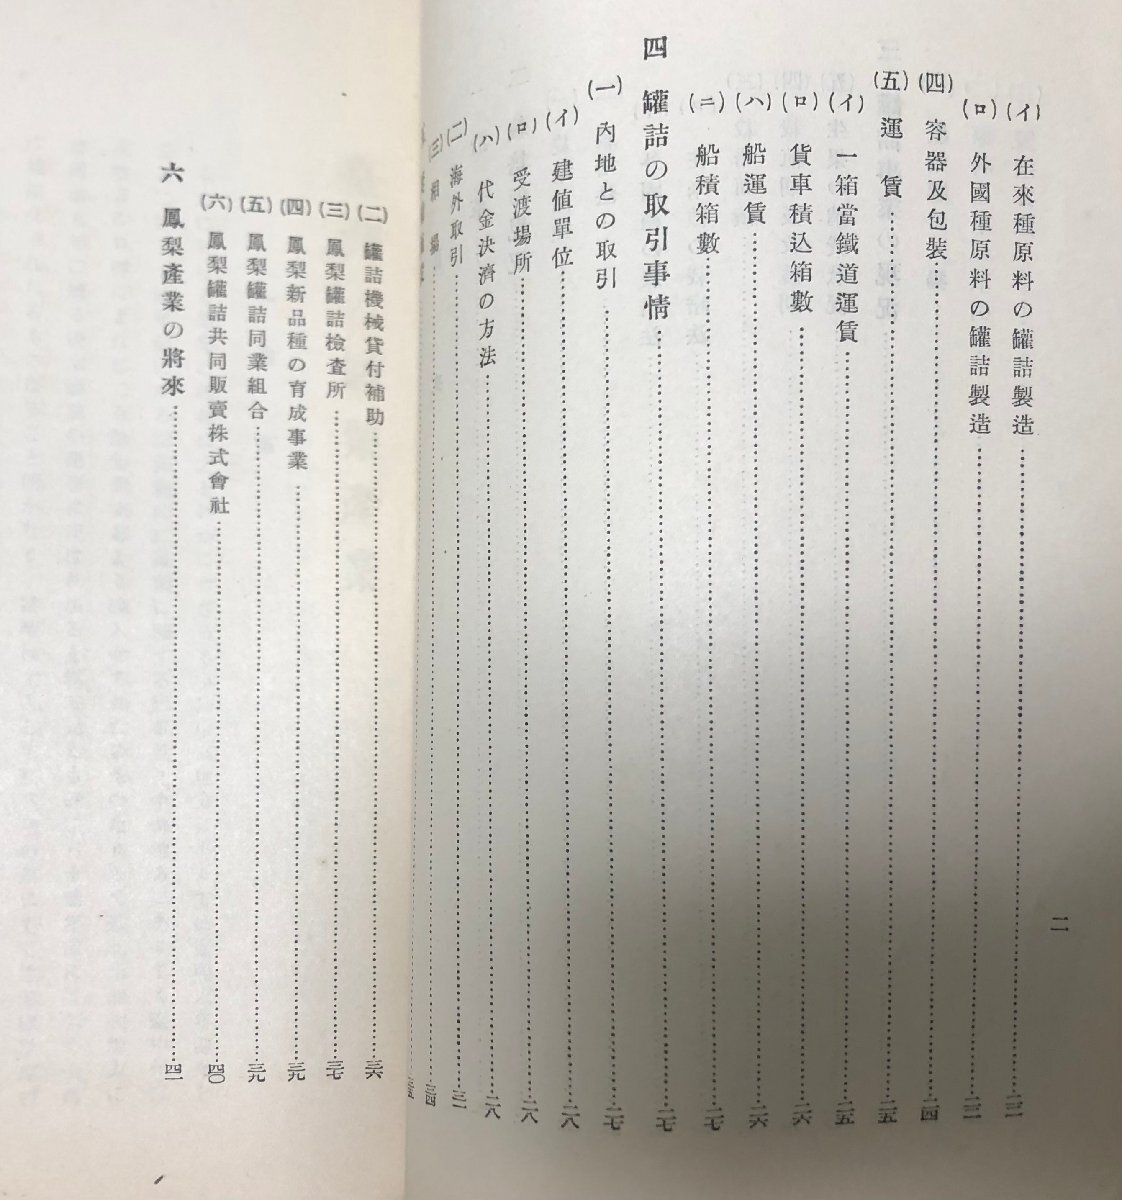 二
(イ) 在來種原料の罐詰製造……二二
(ロ) 外國種原料の罐詰製造……二二
(四) 容器及包裝……二四
(五) 運賃……二五
(イ) 一箱當鐵道運賃……二五
(ロ) 貨車積込箱數……二六
(ハ) 船運賃……二六
(ニ) 船積箱數……二七
四 罐詰の取引事情……二七
(一) 內地との取引……二七
(イ) 建值單位……二八
(ロ) 受渡場所……二八
(ハ) 代金決濟の方法……二八
(二) 海外取引……三一
(三) 相場……三四
(二) 罐詰機械貸付補助……三六
(三) 鳳梨罐詰檢査所……三七
(四) 鳳梨新品種の育成事業……三九
(五) 鳳梨罐詰同業組合……三九
(六) 鳳梨罐詰共同販賣株式會社……四〇
六 鳳梨產業の將來……四一